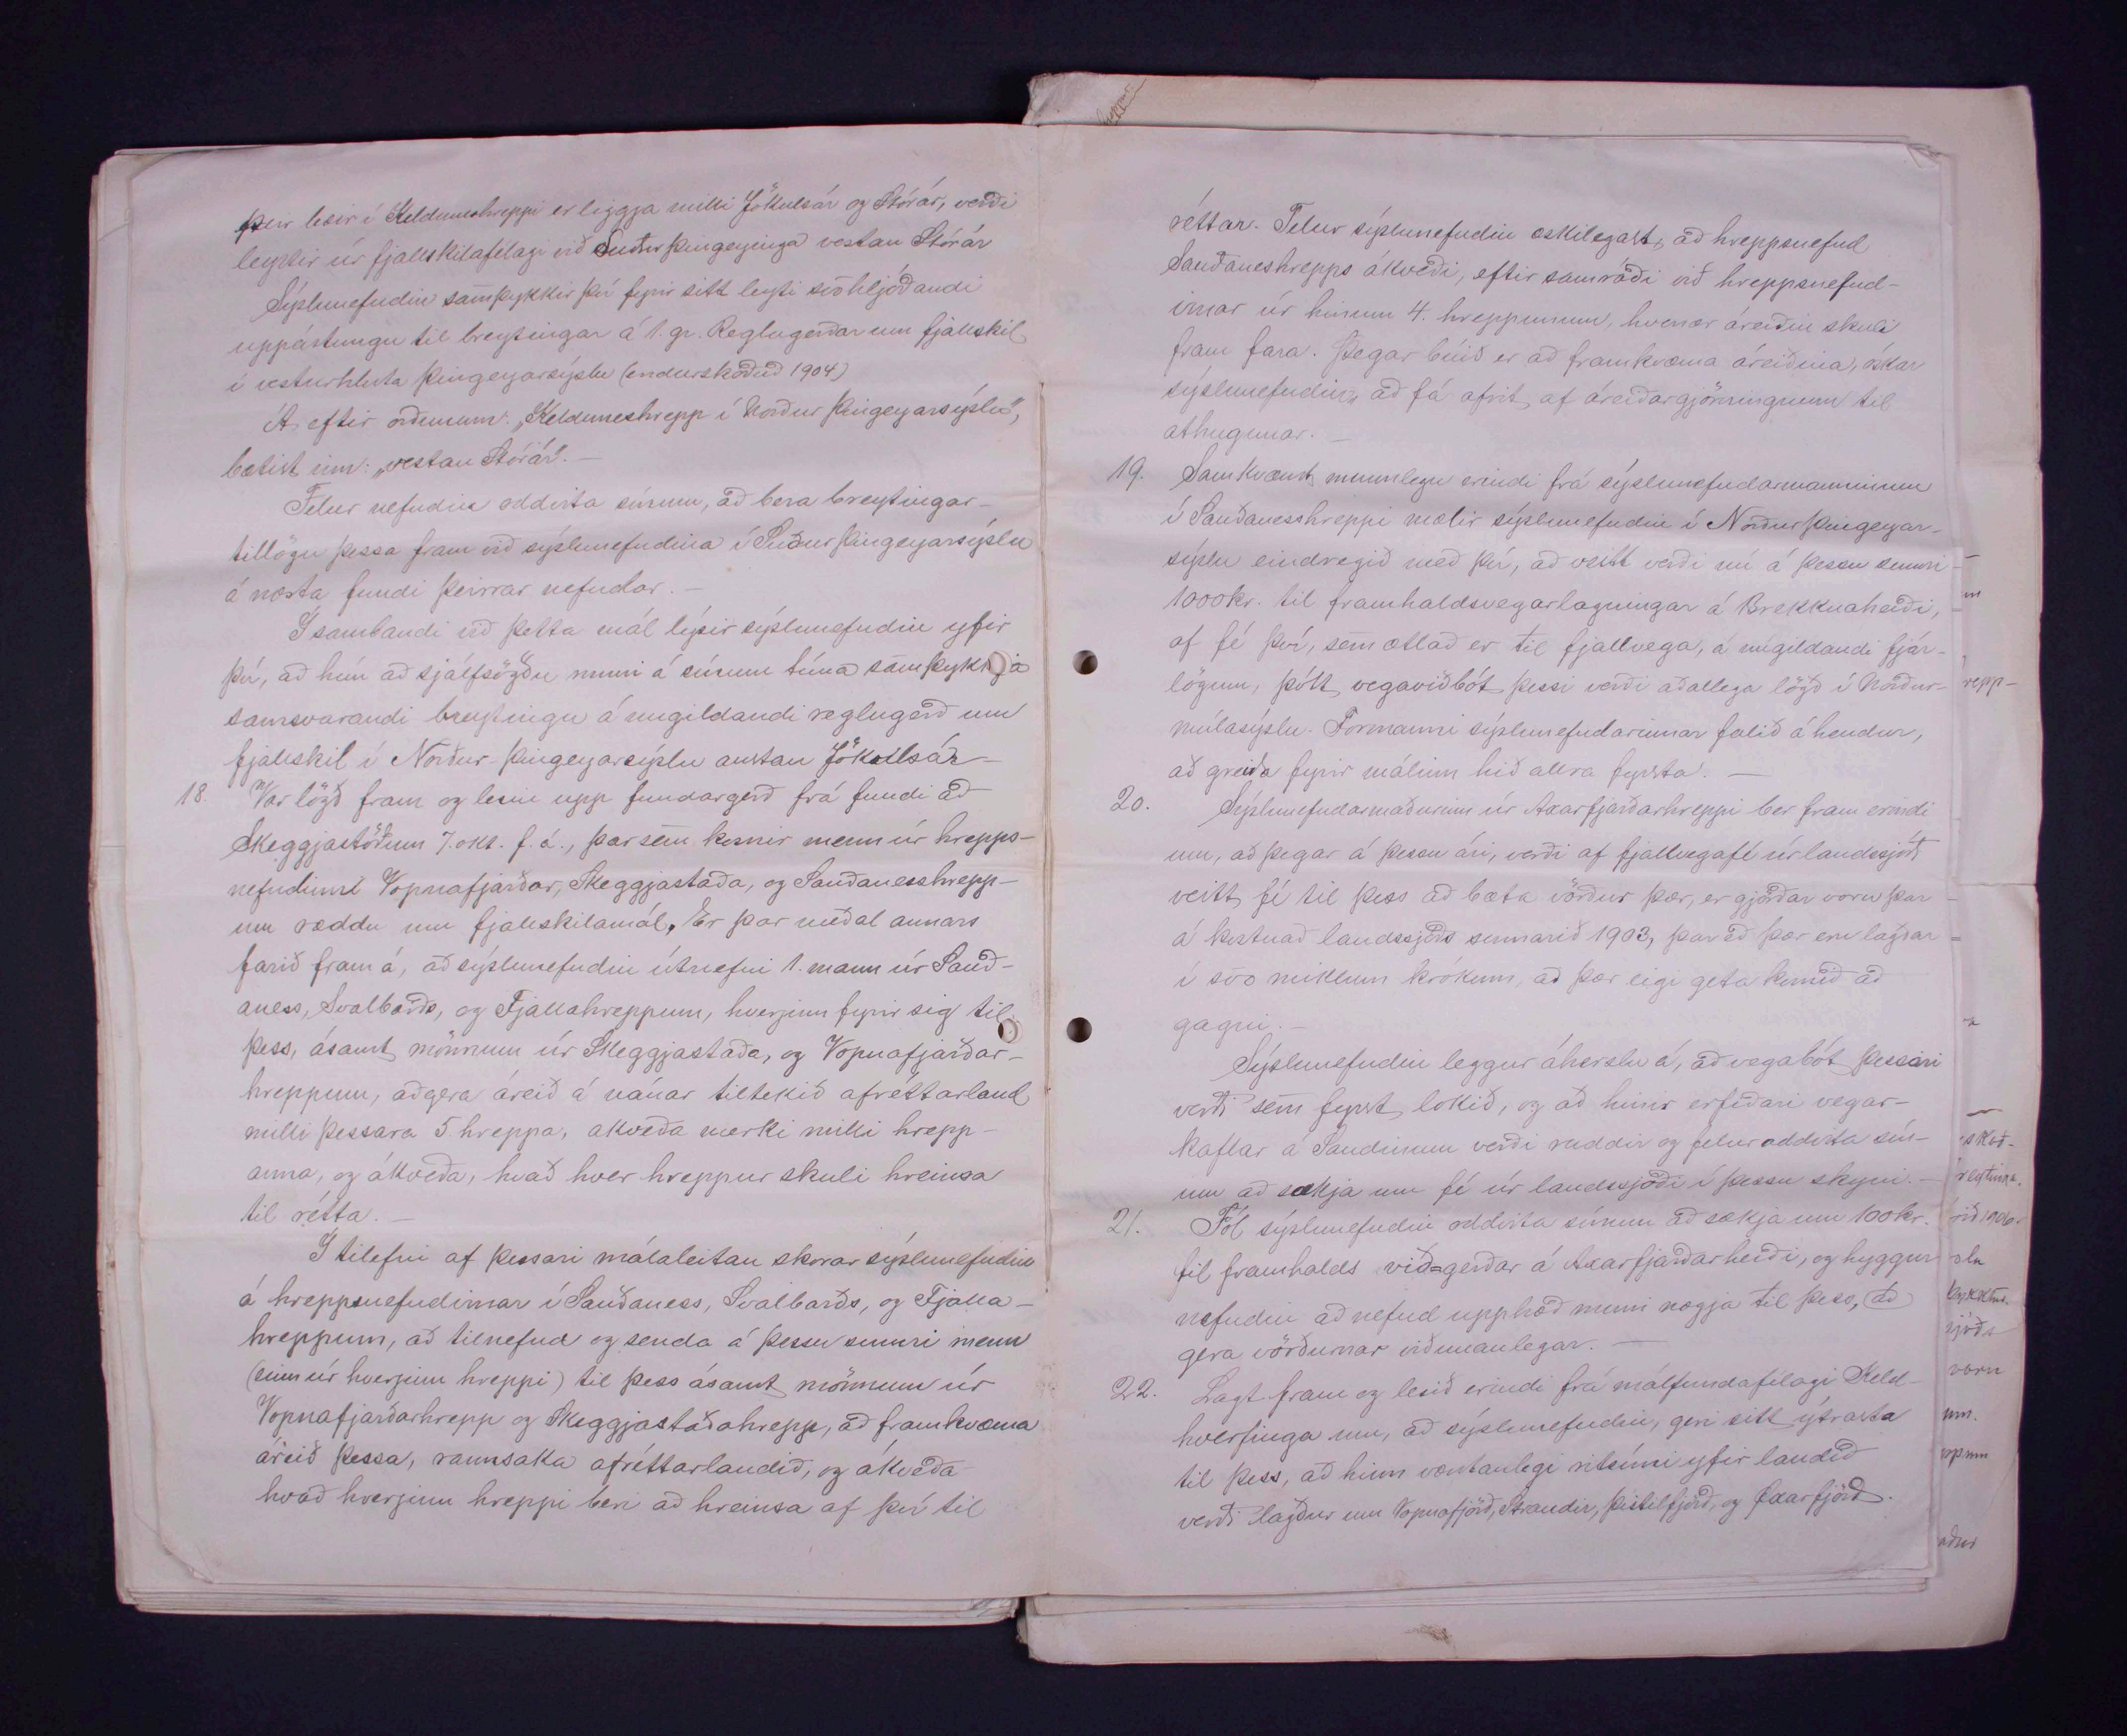 þeir bæir í Kelduneshreppi er liggja milli Jökulsár og Stórár, verði
leystir úr fjallskilafélagi við Suður Þingeyinga vestan Stórár
Sýslunefndin samþykkir því fyrir sitt leyti svohljóðandi
uppástungu til breytingar á 1. gr. Reglugerðar um fjallskil
í vesturhluta Þingeyarsýslu (endurskoðuð 1904)
Á eftir orðunum: „Kelduneshrepp í Norður Þingeyarsýslu",
bætist inn: „vestan Stórár". —
Felur nefndin oddvita sínum, að bera breytingar-
tillögu þessa fram við sýslunefndina í Suður Þingeyarsýslu
á næsta fundi þeirrar nefndar. —
Í sambandi við þetta mál lýsir sýslunefndin yfir
því, að hún að sjálfsögðu muni á sínum tíma samþykkja
samsvarandi breytingu á núgildandi reglugerð um
fjallskil í Norður-Þingeyarsýslu austan Jökullsár —
18. Var lögð fram og lesin upp fundargerð frá fundi að
Skeggjastöðum 7. okt. f. á., þar sem kosnir menn úr hrepps-
nefndinni Vopnafjarðar, Skeggjastaða, og Sauðanesshrepp-
um ræddu um fjallskilamál. Er þar meðal annars
farið fram á, að sýslunefndin útnefni 1. mann úr Sauð-
aness, Svalbarðs, og Fjallahreppum, hverjum fyrir sig til
þess, ásamt mönnum úr Skeggjastaða, og Vopnafjarðar-
hreppum, að gera áreið á nánar tiltekið afréttarland
milli þessara 5 hreppa, akveða merki milli hrepp-
anna, og ákveða, hvað hver hreppur skuli hreinsa
til rétta. —
Í tilefni af þessari málaleitan skorar sýslunefndin
á hreppsnefndirnar í Sauðaness, Svalbarðs, og Fjalla-
hreppum, að tilnefnd og senda á þessu sumri menn
(einn úr hverjum hreppi) til þess ásamt mönnum úr
Vopnafjarðarhrepp og Skeggjastaðahrepp, að framkvæma
áreið þessa, rannsaka afréttarlandið, og ákveða
hvað hverjum hreppi beri að hreinsa af því til
réttar. Telur sýslunefndin æskilegast, að hreppsnefnd
Sauðaneshrepps ákveði, eftir samráði við hreppsnefnd-
irnar úr hinum 4. hreppunum, hvenær áreiðin skuli
fram fara. Þegar búið er að framkvæma áreiðina, óskar
sýslunefndin, að fá afrit af áreiðargjörningnum til
athugunar. —
19. Samkvæmt munnlegu erindi frá sýslunefndarmanninum
í Sauðanesshreppi mælir sýslunefndin í Norður Þingeyar-
sýslu eindregið með því, að veitt verði nú á þessu sumri
1000 kr. til framhaldsvegarlagningar á Brekknaheiði,
af fé því, sem ætlað er til fjallvega, á núgildandi fjár-
lögum, þótt vegaviðbót þessi verði aðallega lögð í Norður-
múlasýslu. Formanni sýslunefndarinnar falið á hendur,
að greiða fyrir málinu hið allra fyrsta. —
20. Sýslunefndarmaðurinn úr Axarfjarðarhreppi ber fram erindi
um, að þegar á þessu ári, verði af fjallvegafé úr landssjóði
veitt fé til þess að bæta vörður þær, er gjörðar voru þar
á kostnað landssjóðs sumarið 1903, þar eð þær eru lagðar
í svo miklum krókum, að þær eigi geta komið að
gagni. —
Sýslunefndin leggur áherslu á, að vegabót þessari
verði sem fyrst lokið, og að hinir erfiðari vegar-
kaflar á Sandinum verði ruddir og felur oddvita sín-
um að sækja um fé úr landssjóði í þessu skyni. —
21. Fól sýslunefndin oddvita sínum að sækja um 100 kr.
til framhalds við=gerðar á Axarfjarðarheiði, og hyggur
nefndin að nefnd upphæð muni nægja til þess, að
gera vörðurnar viðunanlegar. —
22. Lagt fram og lesið erindi frá málfundafélagi Keld-
hverfinga um, að sýslunefndin, geri sitt ýtrasta
til þess, að hinn væntanlegi ritsími yfir landið
verði lagður um Vopnafjörð, Strandir, Þistilfjörð, og Axarfjörð.